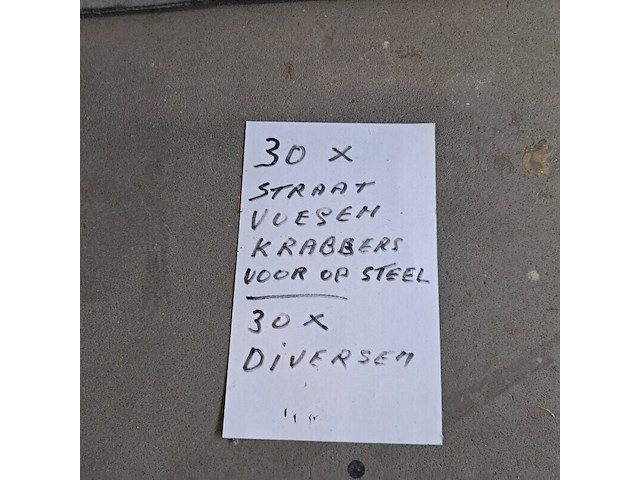 30 X
STRAAT
VOEGEN
KRABBERS
VOOR OP STEEL
30 X
DIVERSEN